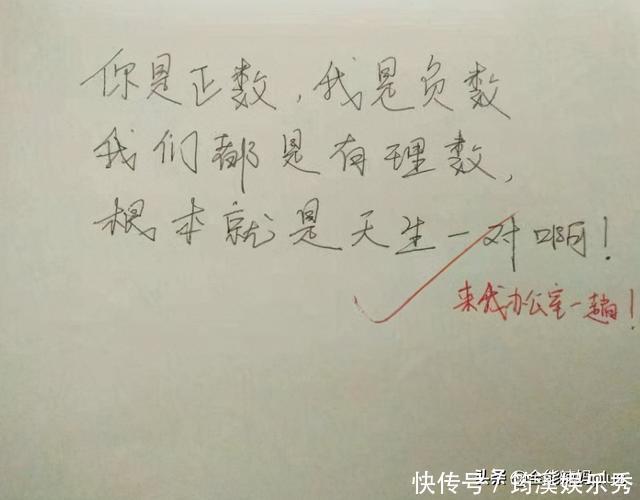 你是正数，我是负数
我们都是有理数，
根本就是天生一对啊！
来我办公室一趟！
头条
快传号 / 筠溪娱乐秀